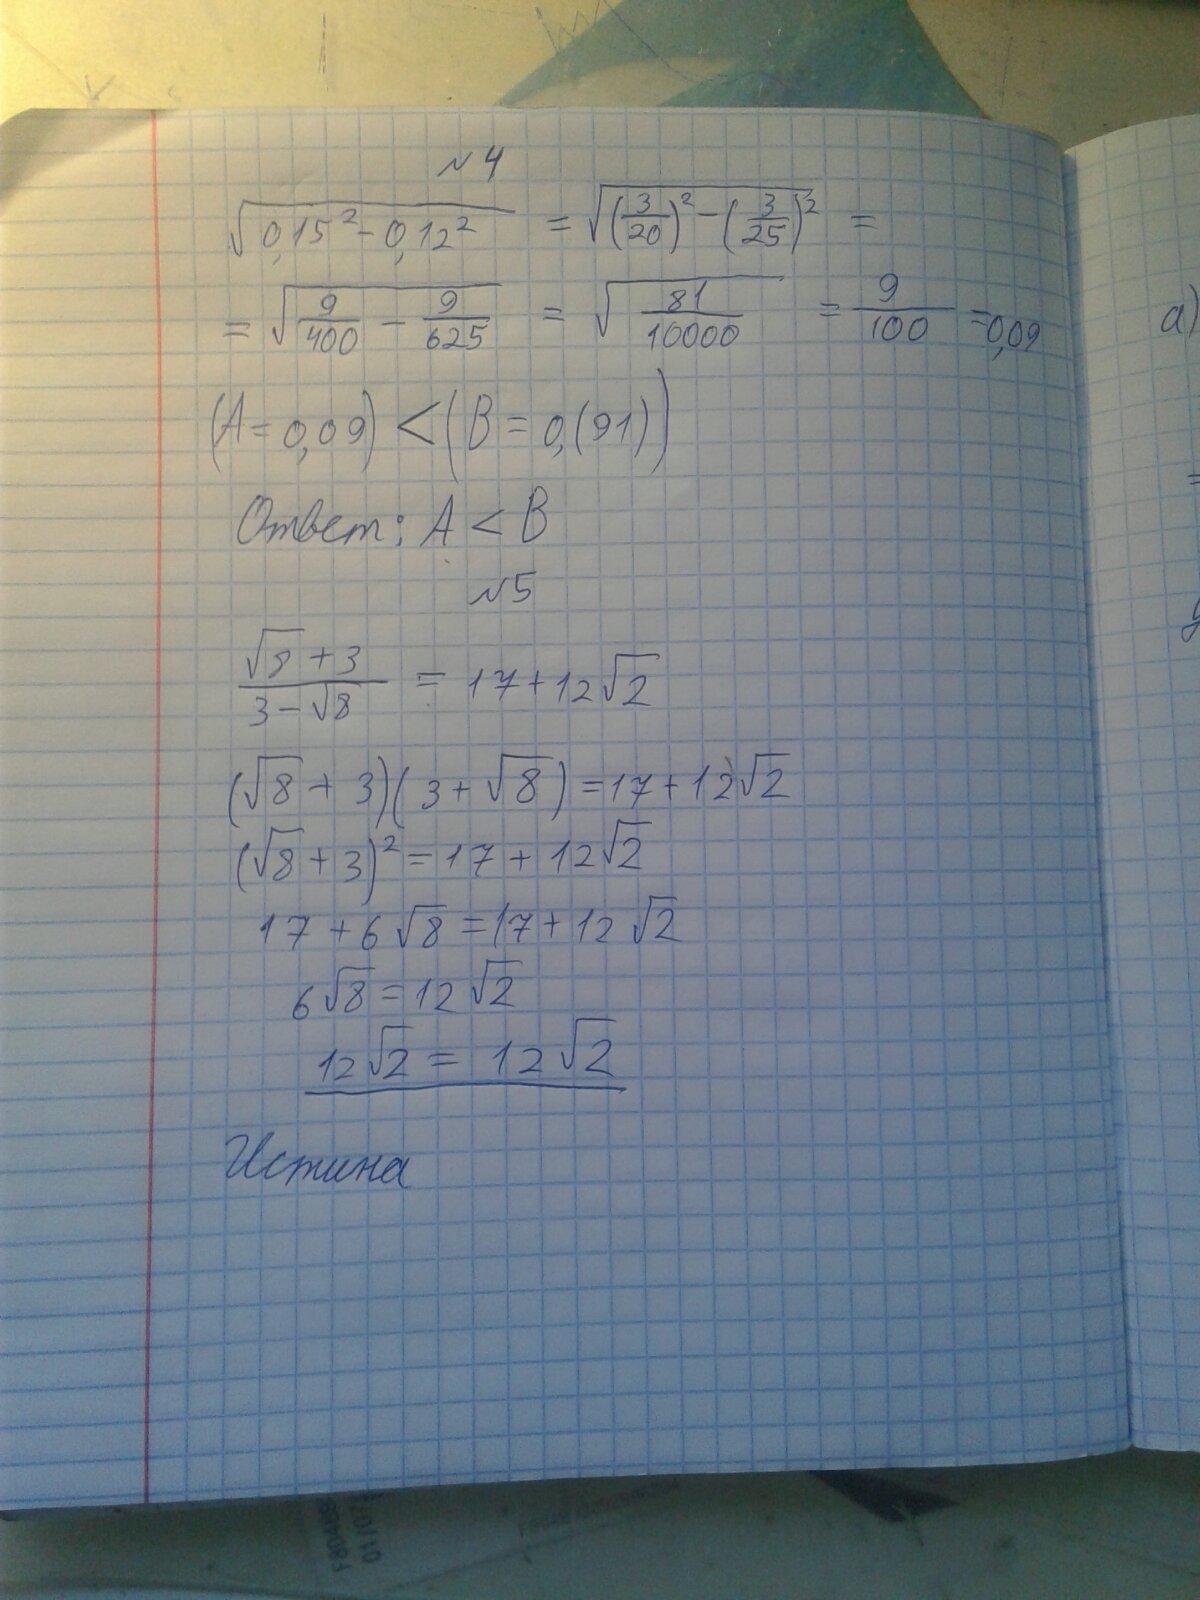 №4
√(0,15² - 0,12²) = √((3/20)² - (3/25)²) =
= √(9/400 - 9/625) = √(81/10000) = 9/100 = 0,09
(A = 0,09) < (B = 0,(91))
Ответ: A < B
№5
(√8 + 3)/(3 - √8) = 17 + 12√2
(√8 + 3)(3 + √8) = 17 + 12√2
(√8 + 3)² = 17 + 12√2
17 + 6√8 = 17 + 12√2
6√8 = 12√2
12√2 = 12√2
Истина
а)
=